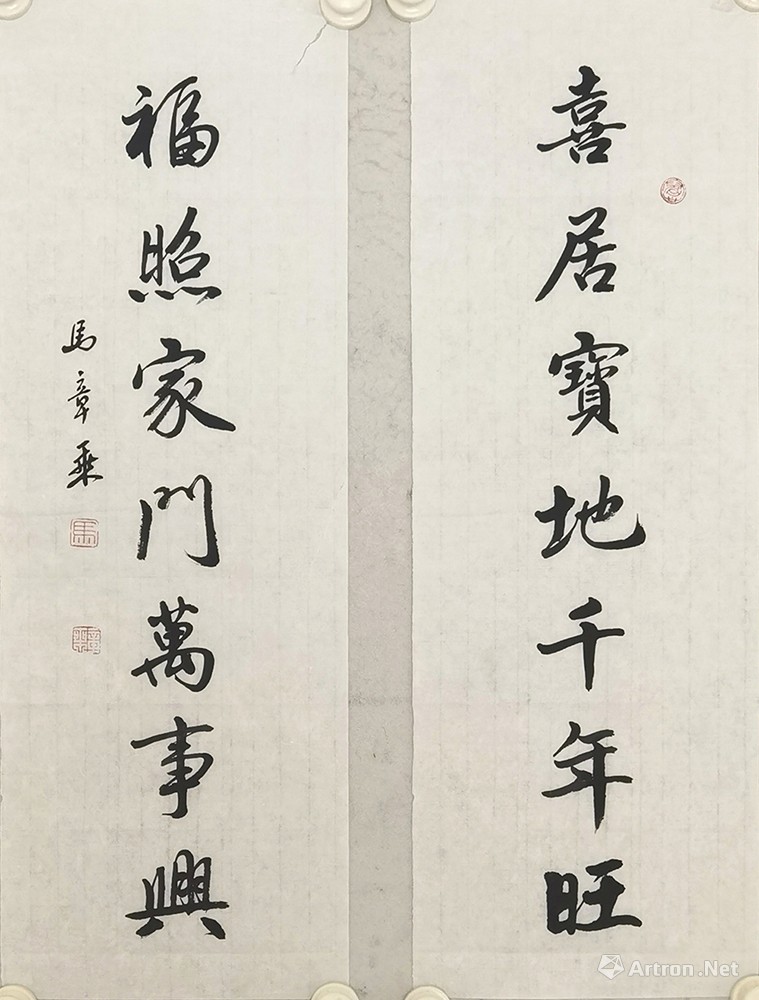 喜居寶地千年旺
福照家門萬事興
馬章乘
馬
Artron.Net